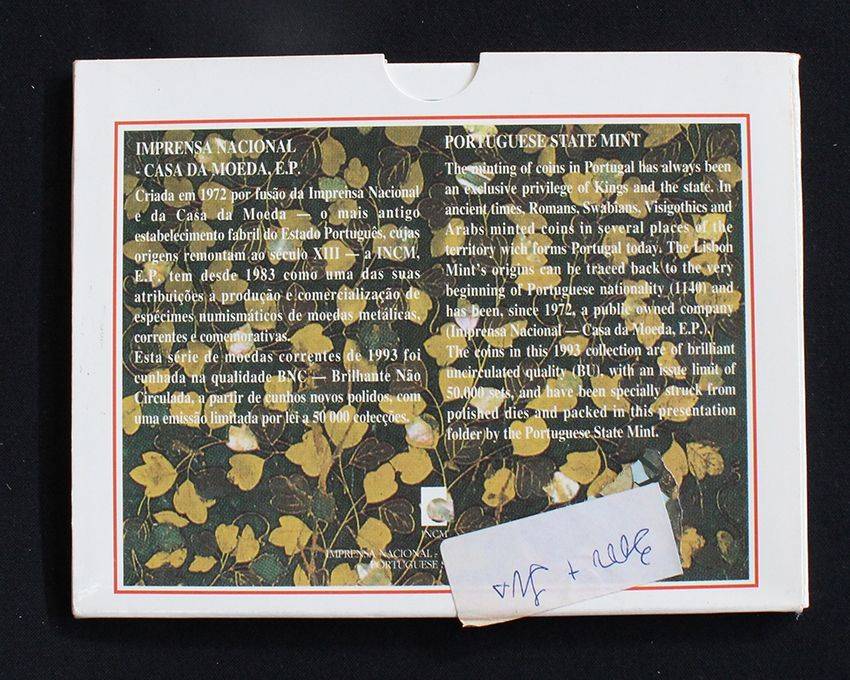 IMPRENSA NACIONAL
- CASA DA MOEDA, E.P.
Criada em 1972 por fusão da Imprensa Nacional
e da Casa da Moeda — o mais antigo
estabelecimento fabril do Estado Português, cujas
origens remontam ao século XIII — a INCM,
E.P. tem desde 1983 como uma das suas
atribuições a produção e comercialização de
espécimes numismáticos de moedas metálicas,
correntes e comemorativas.
Esta série de moedas correntes de 1993 foi
cunhada na qualidade BNC — Brilhante Não
Circulada, a partir de cunhos novos polidos, com
uma emissão limitada por lei a 50 000 colecções.
PORTUGUESE STATE MINT
The minting of coins in Portugal has always been
an exclusive privilege of Kings and the state. In
ancient times, Romans, Swabians, Visigothics and
Arabs minted coins in several places of the
territory wich forms Portugal today. The Lisboh
Mint's origins can be traced back to the very
beginning of Portuguese nationality (1140) and
has been, since 1972, a public owned company
(Imprensa Nacional — Casa da Moeda, E.P.).
The coins in this 1993 collection are of brilliant
uncirculated quality (BU), with an issue limit of
50.000 sets, and have been specially struck from
polished dies and packed in this presentation
folder by the Portuguese State Mint.
INCM
IMPRENSA NACIONAL -
PORTUGUESE S